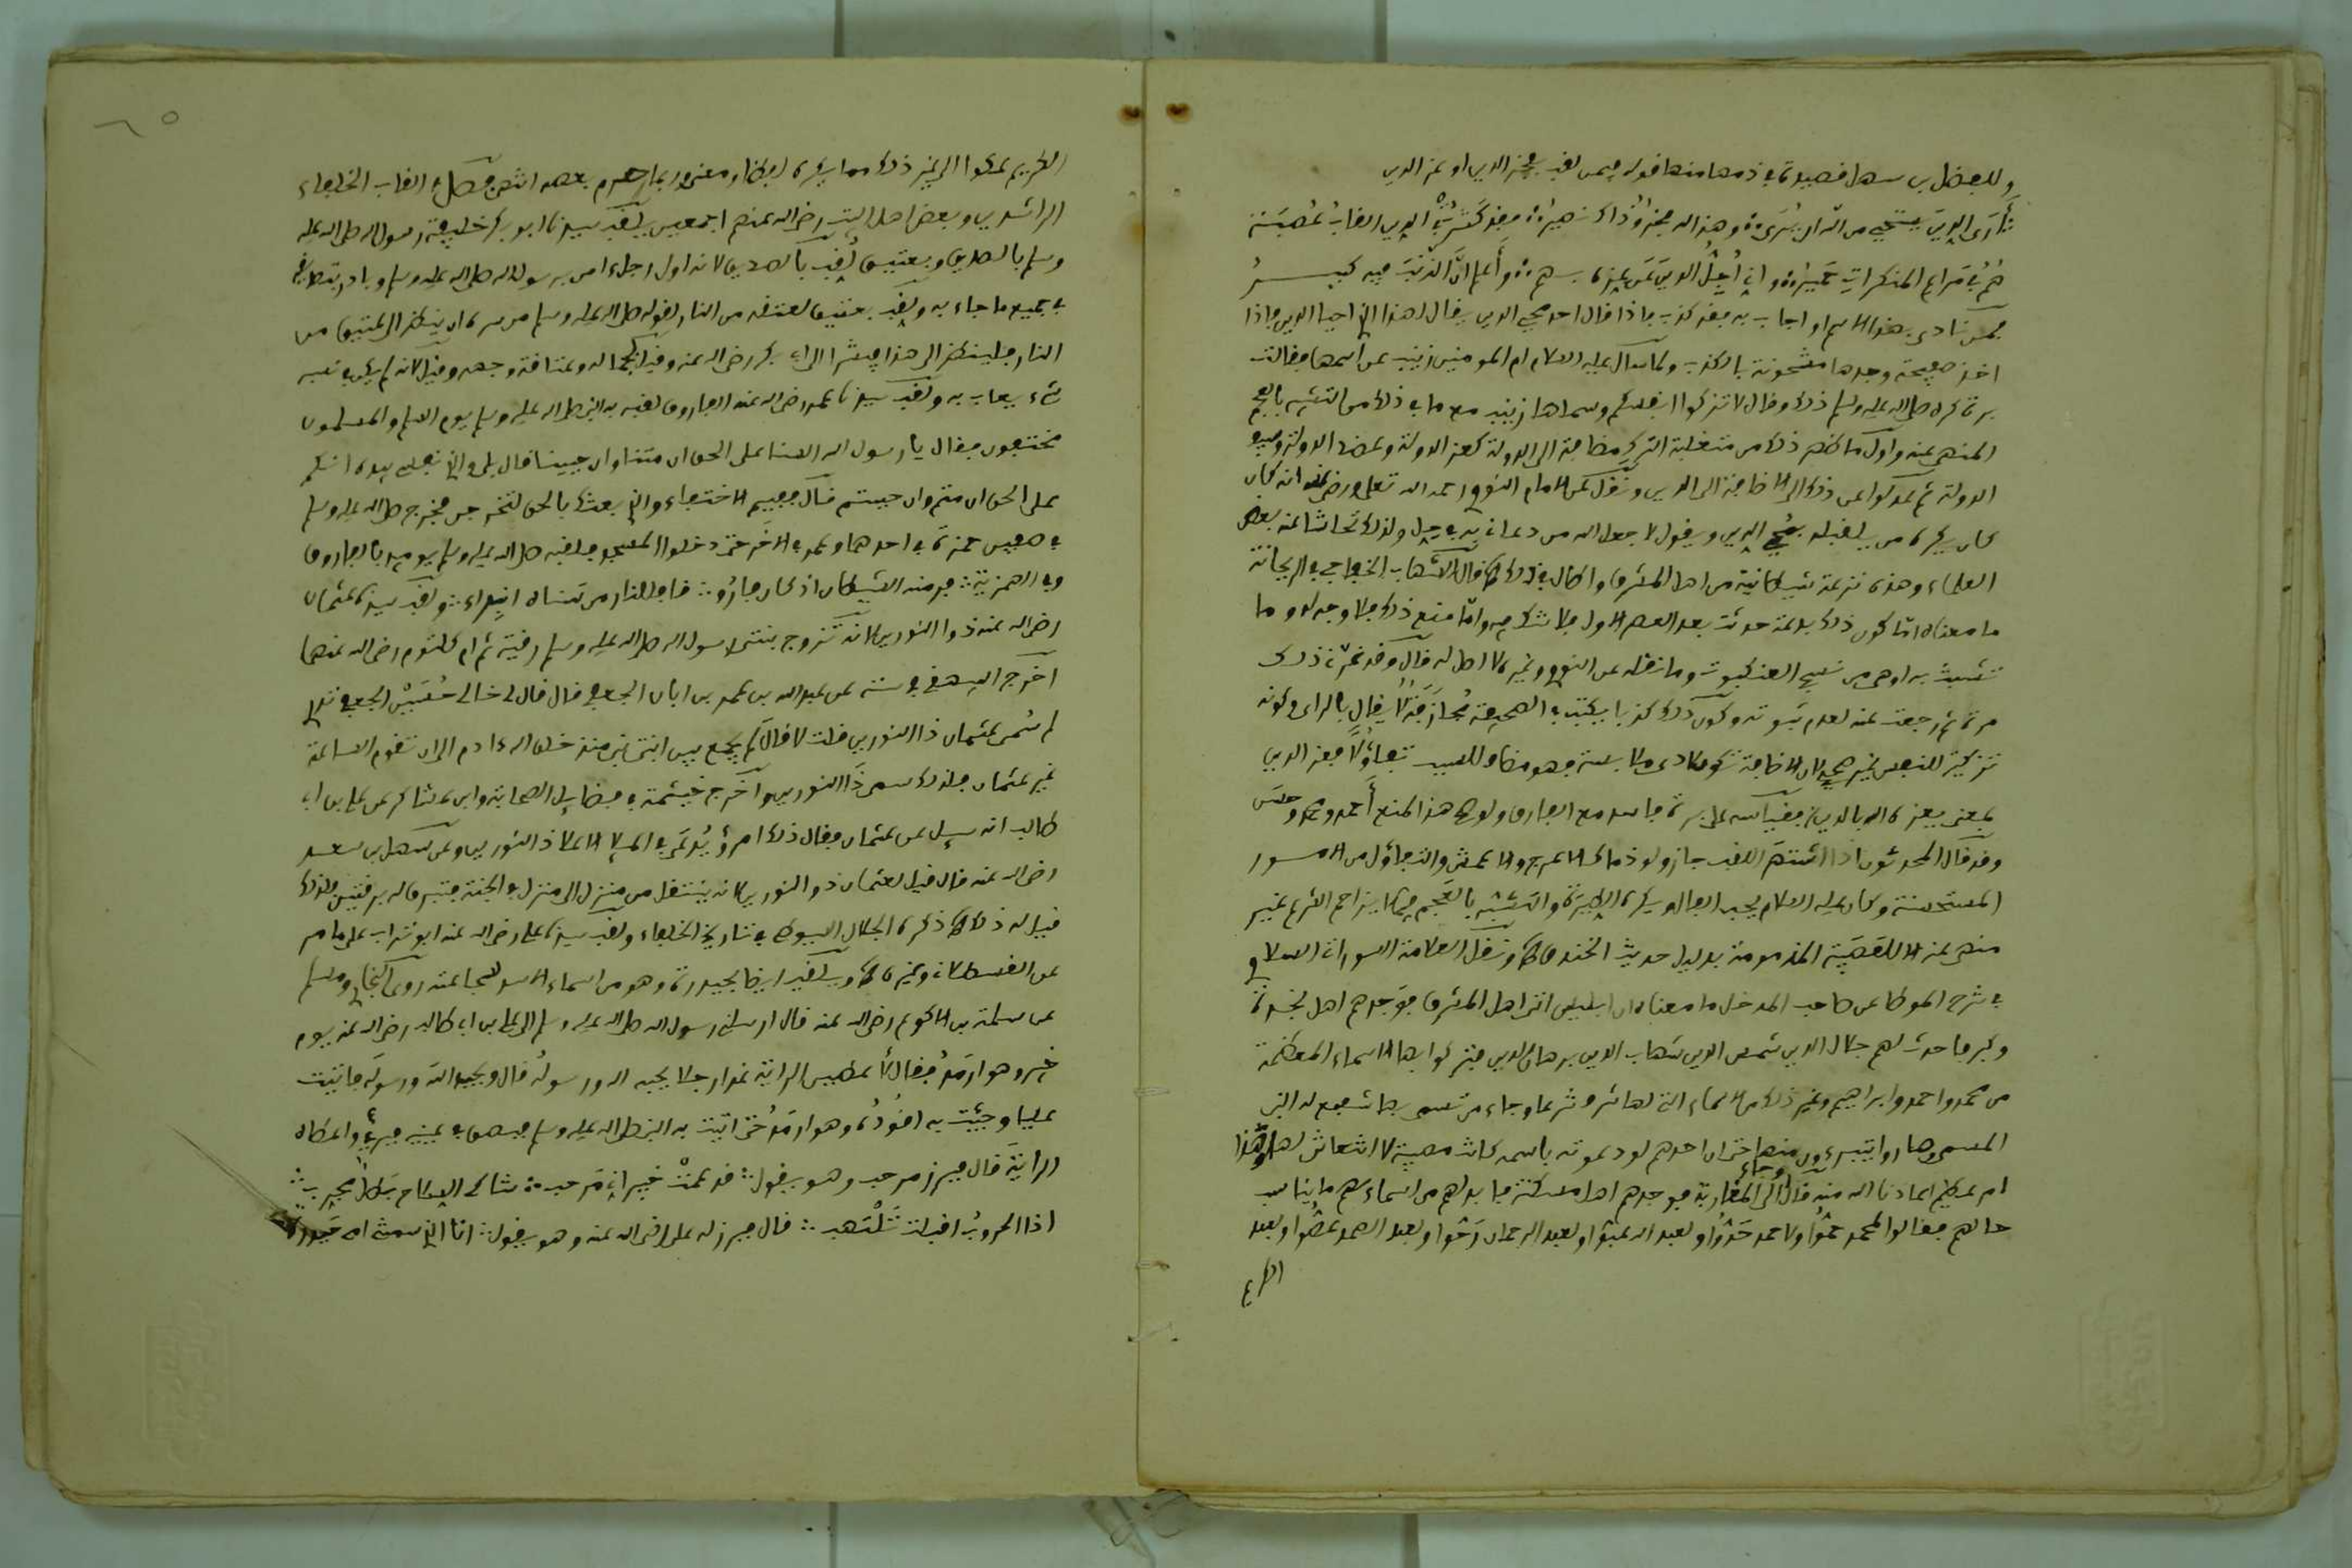 وللفضل بن سهل قصيدة في ذمها منها قوله فيمن لقب بعز الدين او عز الدين
أرى الدين يستحي من الله أن يُرى وهذا له فخر وذاك نصير فقد كثرت في الدين القاب عصبة
هم في مراع المنكرات حمير واني أجل الدين عن عزه بهم وأعلم ان الذنب فيه كبير
فمن نادى بهذا الاسم او اجاب به فقد كذب
اخذ صحيفة وجدها مشحونة بالكذب ولما سال عليه السلام ام المومنين زينب عن اسمها فقالت
برة كره صلى الله عليه وسلم ذلك وقال لا تزكوا انفسكم وسماها زينب مع ما في ذلك من التشبه بالعجم
المنهى عنه واول ما ظهر ذلك من متغلبة الترك مضافة الى الدولة كعز الدولة وعضد الدولة
الدولة ثم عدلوا عن ذلك الى الاضافة الى الدين ونقل عن الامام النووي رحمه الله تعلى ورضي عنه انه كان
كان يكره من يلقبه بمحي الدين ويقول لا جعل الله من دعاني به في حل ولذلك تحاشا عنه بعض
العلماء وهذه نزعة شيطانية من اهل المشرق واطال في ذلك قال الشهاب الخفاجي في الريحانة
ما معناه اما كون ذلك بدعة حدثت بعد العصر الاول فلا شك فيه واما منع ذلك فلا وجه له وما
تشبث به اوهى من نسج العنكبوت وما نقله عن النووي وغيره لا اصل له قال وقد غرني ذلك
مرة ثم رجعت عنه لعدم ثبوته وكون ذلك كذبا يكتب في الصحيفة مجازفة لا يقال بالراى وكونه
تزكية للنفس غير صحيح لان الاضافة تكون لادنى ملابسة فهو مضاف للسبب تفاؤلا فعز الدين
بمعنى يعزه الله بالدين فقياسه على برة فاسد مع الفارق ولو صح هذا المنع أحمد ومحمد وحسن
وقد قال المحدثون اذا اشتهر اللقب جاز ولو ذما كالاعرج والاعمش والتفاؤل من الامور
المستحسنة وكان عليه السلام يحب الفال ويكره الطيرة والتشبه بالعجم فيما لا يزاحم الشرع غير
منهى عنه الا للعصبية المذمومة بدليل حديث الخندق ونقل العلامة السوداني السلاوي
في شرح الموطا عن صاحب المدخل ما معناه ان ابليس اتى اهل المشرق فوجدهم اهل نخوة
وكبر فاحدث لهم جلال الدين شمس الدين شهاب الدين برهان الدين فتركوا بها الاسماء المعظمة
من محمد واحمد وابراهيم وغير ذلك من الاسماء التي لها شرف شرعا وجاء من تسمى بها شفع له النبي
المسمى وصاروا يتبرءون منها حتى ان احدهم لو دعوته باسمه كانت مصيبة لا انتعاش لها وهذا
ام عظيم اعاذنا الله منه قال واتى المغاربة فوجدهم اهل مسكنة فابدلهم من اسماءهم ما يناسب
حالهم فقالوا لمحمد حمو ولاحمد حدو ولعبد الله عبو ولعبد الرحمان رحو ولعبد الصمد عصو ولعبد
الكريم

٦٥
الكريم عكوا الى غير ذلك مما
الراشدين وبعض اهل البيت رضي الله عنهم اجمعين يلقب سيدنا ابو بكر خليفة رسول الله صلى الله عليه
وسلم بالصديق وبعتيق لقب بالصديق لانه اول رجل ءامن برسول الله صلى الله عليه وسلم وبادر بتصديقه
في جميع ما جاء به ولقب بعتيق لعتقه من النار لقوله صلى الله عليه وسلم من سره ان ينظر الى عتيق من
النار فلينظر الى هذا مشيرا الى ابي بكر رضي الله عنه وقيل لجماله وعتاقة وجهه وقيل لانه لم يكن في نسبه
شيء يعاب به ولقب سيدنا عمر رضي الله عنه الفاروق لقبه به النبي صلى الله عليه وسلم يوم اسلم والمسلمون
مختفون فقال يا رسول الله السنا على الحق ان متنا وان حيينا قال بلى والذي نفسي بيده انكم
على الحق ان متم وان حييتم قال ففيم الاختفاء والذي بعثك بالحق لتخرجن فخرج صلى الله عليه وسلم
في صفين حمزة في احدهما وعمر في الاخر حتى دخلوا المسجد فلقبه صلى الله عليه وسلم يومئذ بالفاروق
وفي الهمزية فر منه الشيطان اذ كان فاروقا فللنار من سناه انبراء ولقب سيدنا عثمان
رضي الله عنه ذوا النورين لانه تزوج بنتى رسول الله صلى الله عليه وسلم رقية ثم ام كلثوم رضي الله عنهما
اخرج البيهقي في سننه عن عبد الله بن عمر بن ابان الجعفي قال قال لي خالي حسين الجعفي تدري
لم سمي عثمان ذا النورين قلت لا قال لم يجمع بين ابنتي نبي منذ خلق الله ءادم الى ان تقوم الساعة
غير عثمان فلذلك سمي ذا النورين واخرج خيثمة في فضايل الصحابة وابن عساكر عن علي بن ابي
طالب انه سيل عن عثمان فقال ذلك امرؤ يدعى في الملا الاعلا ذا النورين وعن سهل بن سعد
رضي الله عنه قال قيل لعثمان ذو النورين لانه ينتقل من منزل الى منزل في الجنة فتبرق له برقتين فلذلك
قيل له ذلك ذكره الجلال السيوطي في تاريخ الخلفاء ولقب سيدنا علي رضي الله عنه ابو تراب على ما مر
عن القسطلاني وغيره ويلقب ايضا بحيدرة وهو من اسماء الاسد لشجاعته روى البخاري ومسلم
عن سلمة بن الاكوع رضي الله عنه قال ارسلني رسول الله صلى الله عليه وسلم الى علي بن ابي طالب رضي الله عنه يوم
خيبر وهو ارمد فقال لأعطين الراية غدا رجلا يحبه الله ورسوله قال ويحب الله ورسوله فاتيت
عليا وجيت به اقوده وهو ارمد حتى اتيت به النبي صلى الله عليه وسلم فبصق في عينيه فبرئ واعطاه
الراية قال فبرز مرحب وهو يقول قد علمت خيبر اني مرحب شاكى السلاح بطل مجرب
اذا الحروب اقبلت تلتهب قال فبرز له علي رضي الله عنه وهو يقول انا الذي سمتني امي حيدرة